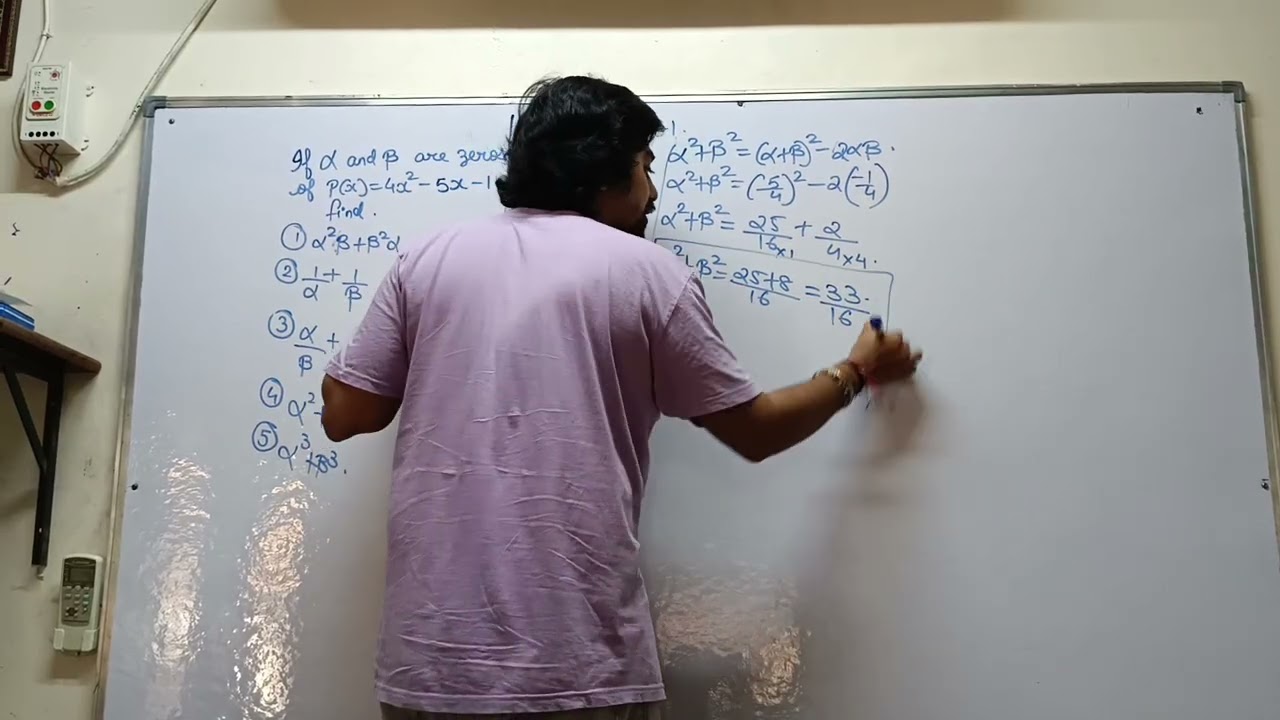 If α and β are zeros
of P(x)=4x²-5x-1
find.
① α²β+β²α
② 1/α + 1/β
③ α/β +
④ α²
⑤ α³+β³.
1.
α²+β²=(α+β)²-2αβ.
α²+β²=(5/4)²-2(-1/4)
α²+β²= 25/16×1 + 2/4×4.
β²= 25+8/16 = 33/16.